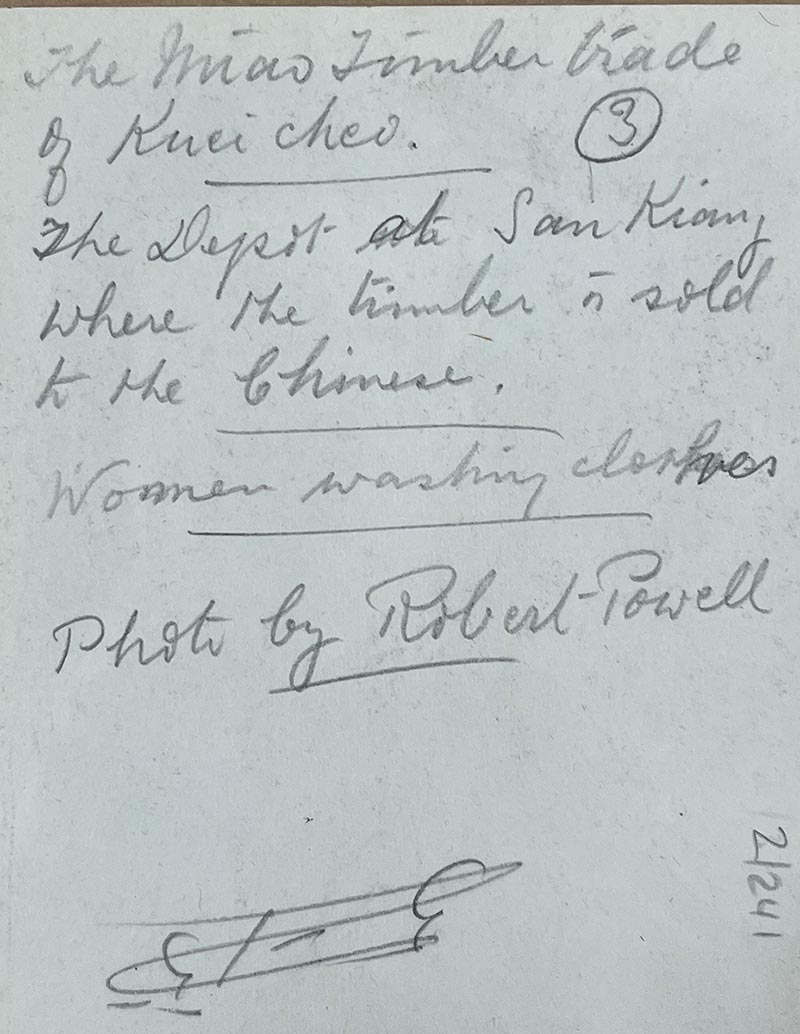 The Miao Timber trade
of Kueicheo. 3
The Depot at San Kiang
where the timber is sold
to the Chinese.
Women washing clothes
Photo by Robert Powell
2/241